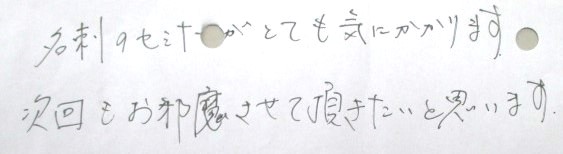 名刺のセミナーがとても気にかかります。
次回もお邪魔させて頂きたいと思います.